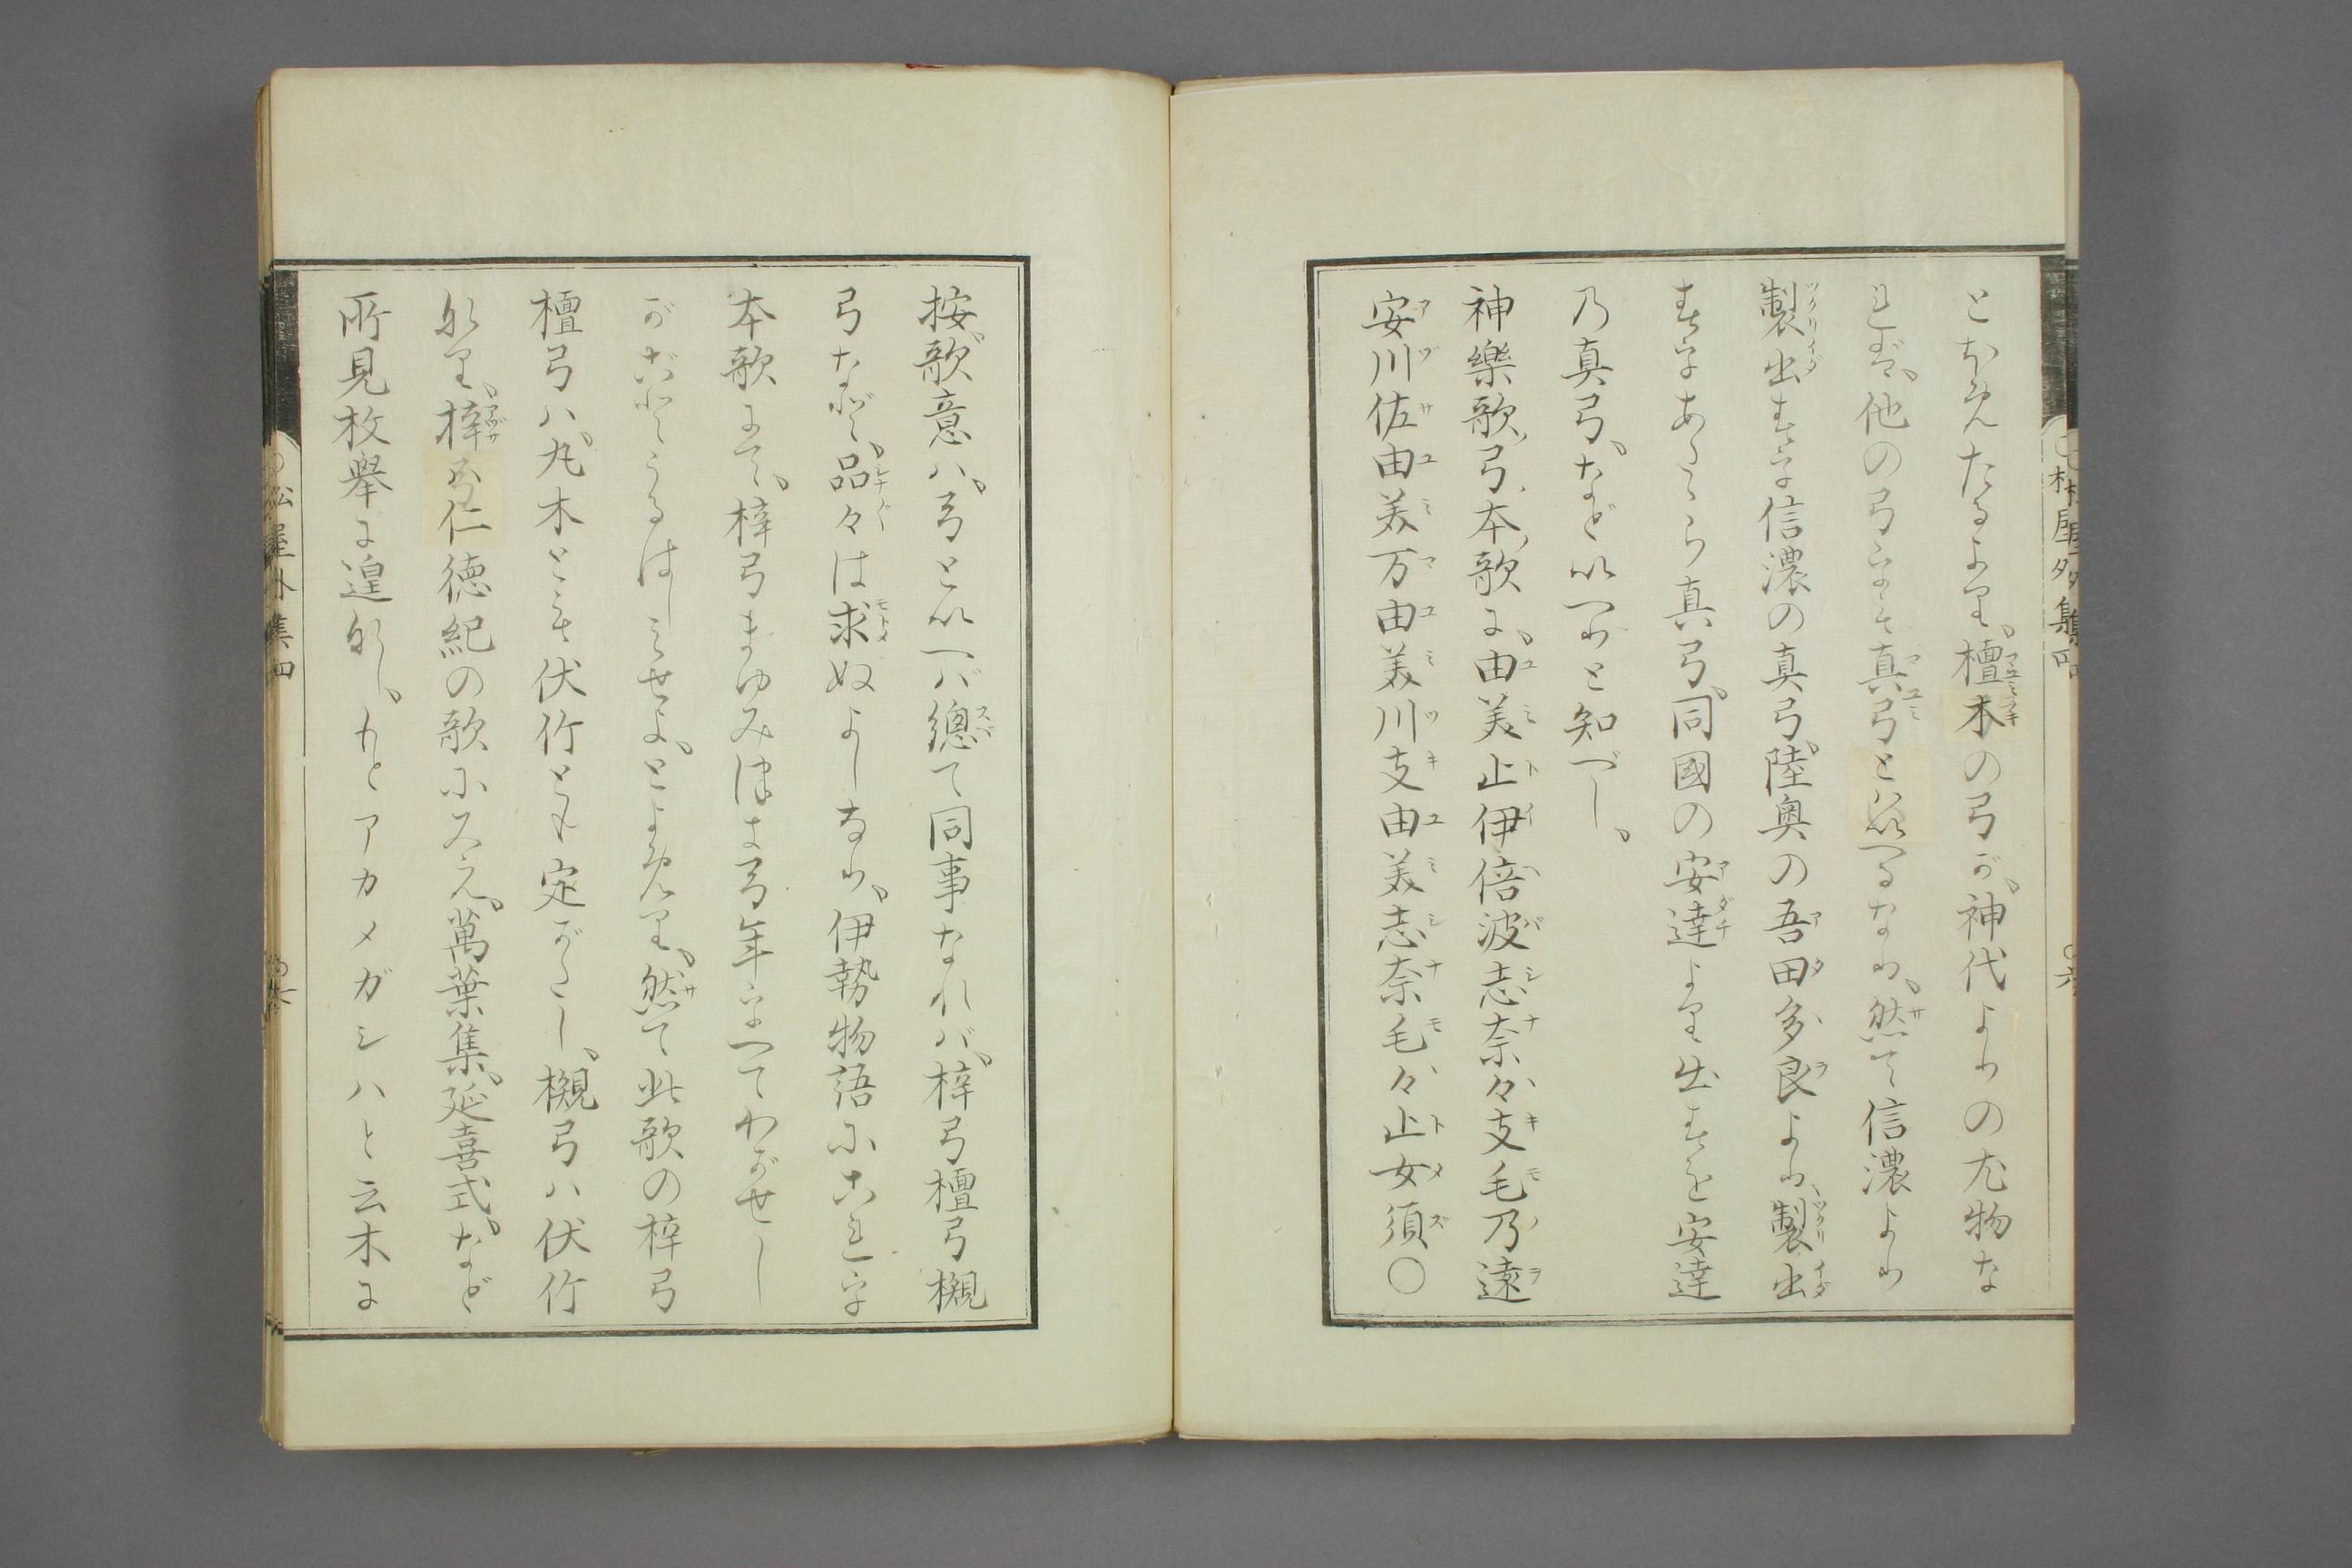 とおぼえたるより、檀木の弓が、神代よりの尤物な
れば、他の弓をも真弓とは以へるなり、然て信濃より
製出すを信濃の真弓、陸奥の吾田多良より、製出
すをあたゝら真弓、同國の安達より出すを安達
乃真弓、など以へりと知べし、
神樂歌、弓、本歌に、由美止伊倍波志奈々支毛乃遠
安川佐由美万由美川支由美志奈毛々止女須〇
按、歌意ハ、弓と以へバ總て同事なれバ、梓弓檀弓槻
弓など、品々は求ぬよしなり、伊勢物語にこれを
本歌にて、梓弓まゆみ津き弓年をへてわがせし
がごとうるはしみせよ、とよめり、然て此歌の梓弓
檀弓ハ、丸木とも伏竹とも定がたし、槻弓ハ伏竹
なり、梓弓仁徳紀の歌にみえ、萬葉集、延喜式、など
所見枚舉に遑なし、もとアカメガシハと云木に